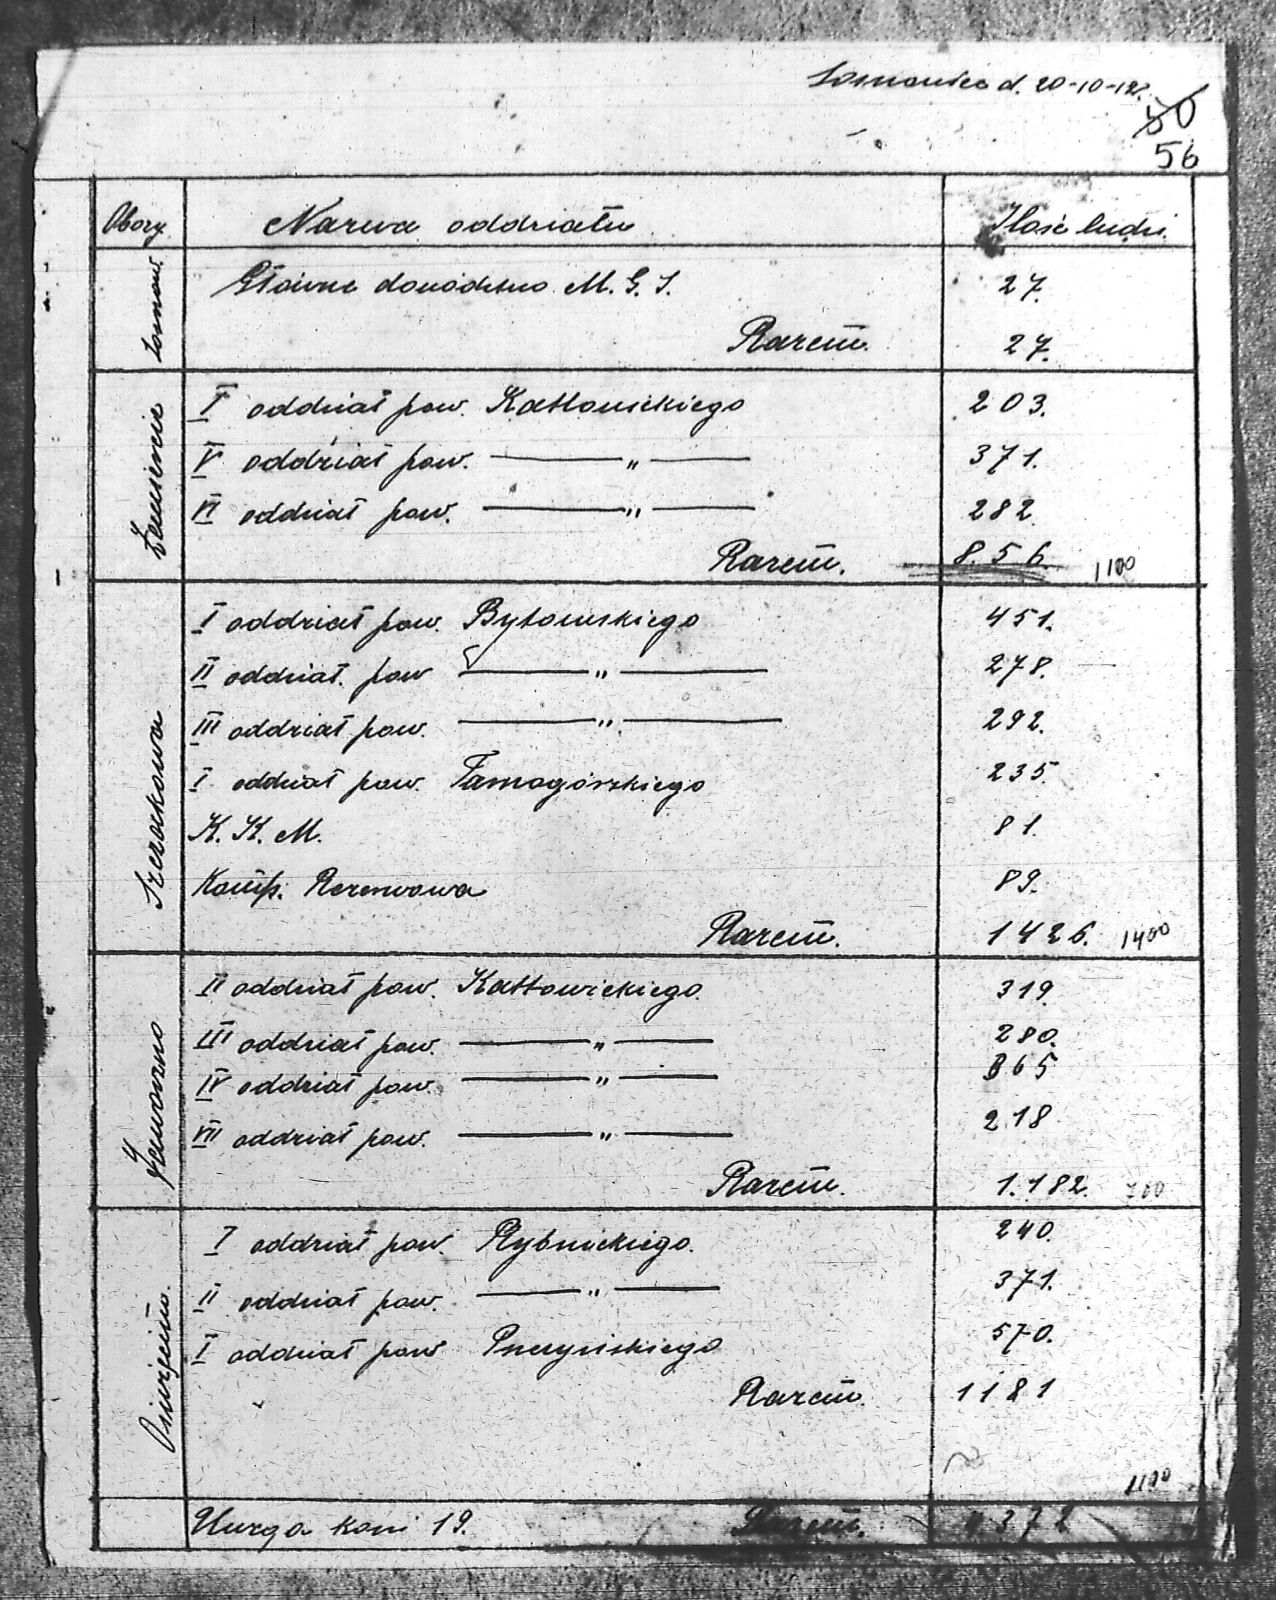 Sosnowiec d. 20-10-19r.
50
56
Obozy Nazwa oddziału Ilość ludzi.
Sosnow. Główne dowództwo M. G. S. 27.
Razem. 27.
I oddział pow. Kattowickiego 203.
V oddział pow. —„— 371.
VI oddział pow. —„— 282
Razem. 8.56. 1100
I oddział pow. Bytomskiego 451.
II oddział. pow —„— 278.
III oddział pow. —„— 292.
Szczakowa
I oddział pow. Tarnogórskiego 235
K. K. M. 81.
Komp. Rezerwowa 89.
Razem. 1426. 1400
II oddział pow. Kattowickiego. 319
III oddział pow. —„— 280.
Jaworzno
IV oddział pow. —„— 365
VII oddział pow. —„— 218
Razem. 1.182. 700
I oddział pow. Rybnickiego. 240.
II oddział pow. —„— 371.
Oświęcim.
I oddział pow Pszczyńskiego 570.
Razem. 1181
1100
Uwaga koni 19. Razem. 4372